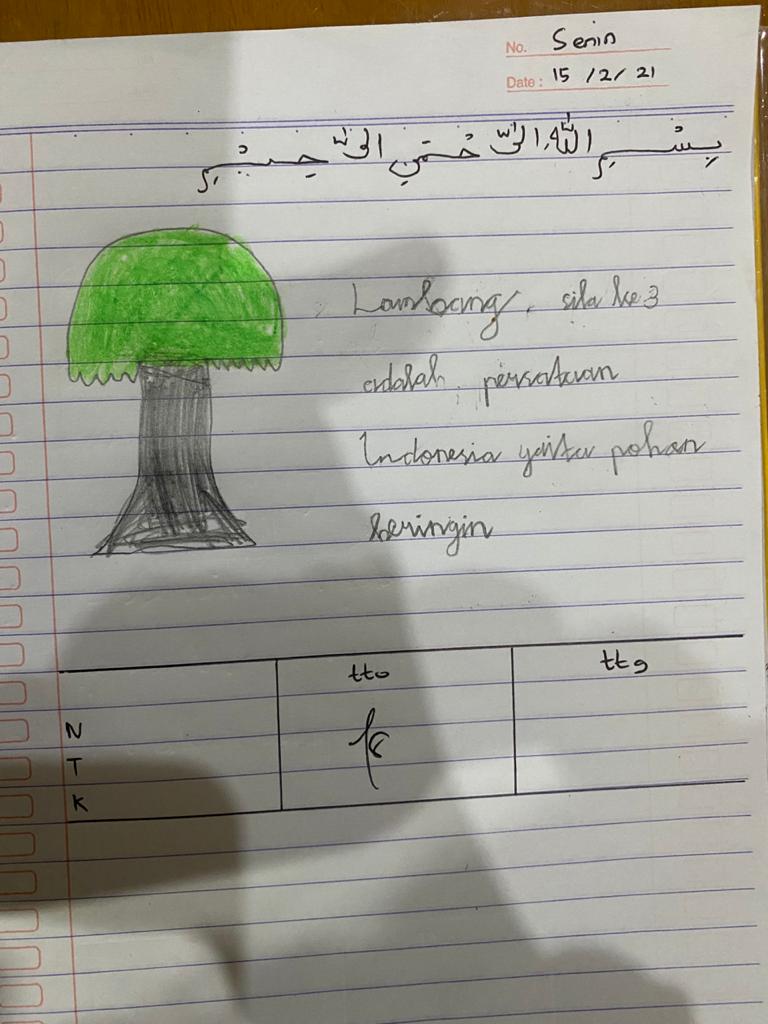 No. Senin
Date: 15 / 2 / 21
بِسْمِ اللّٰهِ الرَّحْمَنِ الرَّحِيْمِ
Lambang, sila ke 3
adalah, persatuan
Indonesia yaitu pohon
beringin
tto ttg
N
T
K